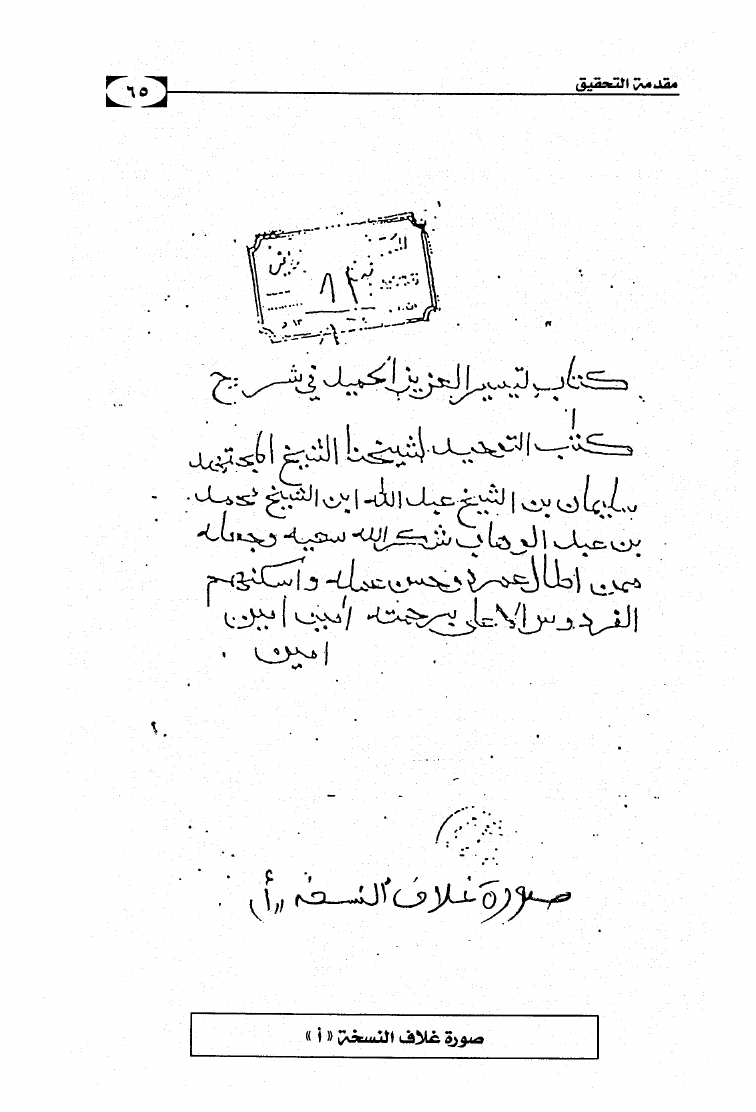 مقدمة التحقيق
٦٥
٨٢
كتاب تيسير العزيز الحميد في شرح
كتاب التوحيد لشيخنا الشيخ المجتهد
سليمان بن الشيخ عبد الله ابن الشيخ محمد
بن عبد الوهاب شكر الله سعيه وجعله
ممن اطال عمره وحسن عمله واسكنهم
الفردوس الاعلى برحمته امين امين
امين
صورة غلاف النسخة «أ»
صورة غلاف النسخة « أ »